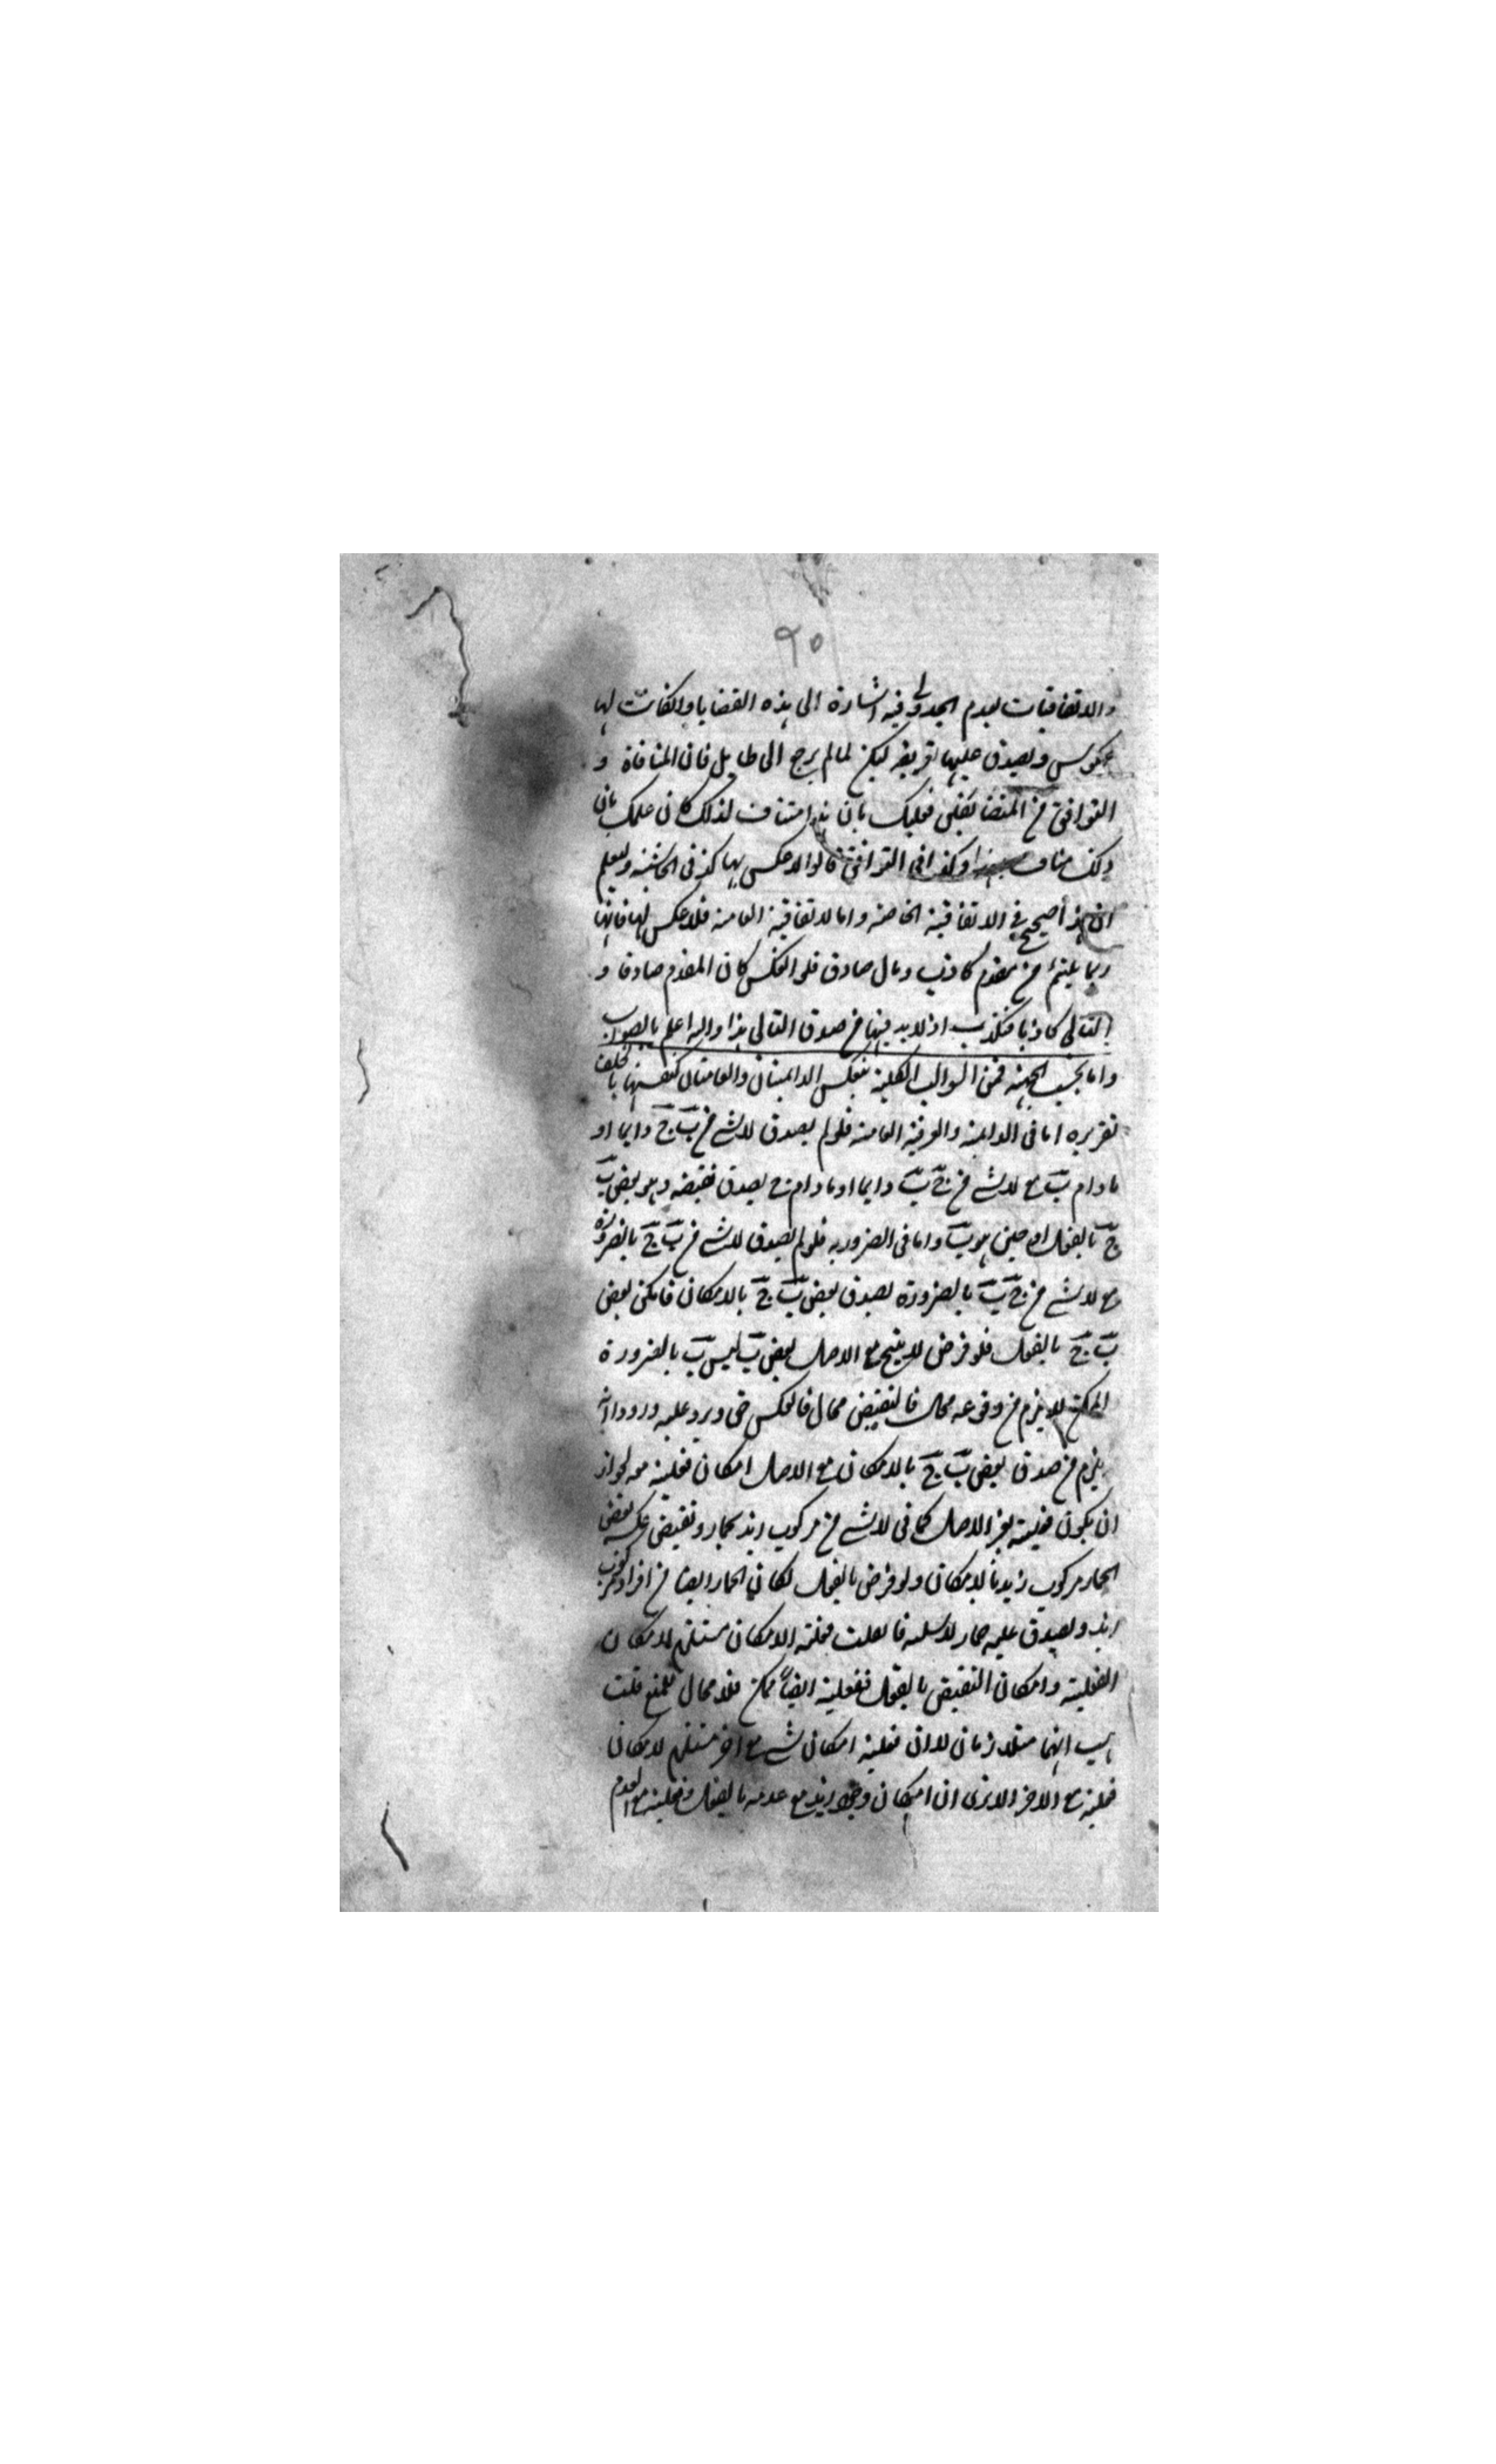 ٩٥
والاتفاقيات لعدم الجدوى فيه اشارة الى هذه القضايا وان كانت لها
عكوس ويصدق عليها تعريفه لكن لما لم يرجع الى طايل فان المنافاة و
التوافق من المتضايفين فعلمك بان هذا مناف لذلك كان علمك بان
ذلك مناف لهذا وكذا في التوافق قالوا لا عكس لها كذا في الحاشية وليعلم
ان هذا صحيح في الاتفاقية الخاصة واما الاتفاقية العامة فلا عكس لها فانها
ربما يلتئم من مقدم كاذب وتال صادق فلو انعكس كان المقدم صادقا و
التالي كاذبا فتكذب اذ لا بد فيها من صدق التالي هذا والله اعلم بالصواب
واما بحسب الجهة فمن السوالب الكلية تنعكس الدائمتان والعامتان كنفسهما بالخلف
تقريره اما في الدائمة والعرفية العامة فلو لم يصدق لا شئ من ب ج دايما او
ما دام ب مع لا شئ من ج ب دايما او ما دام ج يصدق نقيضه وهو بعض ب
ج بالفعل او حين هو ب واما في الضرورية فلو لم يصدق لا شئ من ب ج بالضرورة
مع لا شئ من ج ب بالضرورة لصدق بعض ب ج بالامكان فامكن بعض
ب ج بالفعل فلو فرض لا ينتج مع الاصل بعض ب ليس ب بالضرورة
الممكن لا يلزم من وقوعه محال فالنقيض محال فالعكس حق ويرد عليه ورودا انه
يلزم من صدق بعض ب ج بالامكان مع الاصل امكان فعلية معه لجواز
ان يكون فعلية يغير الاصل كما في لا شئ من مركوب زيد بحمار ونقيض عكسه بعض
الحمار مركوب زيد بالامكان ولو فرض بالفعل لكان الحمار ايضا من افراد مركوب
زيد ويصدق عليه حمار فلا سلب فان قلت فعلية الامكان مستلزم لامكان
الفعلية وامكان النقيض بالفعل ففعلية ايضا ممكن فلا مجال للمنع قلت
هب انهما متلازمان لا ان فعلية امكان شئ مع اخر مستلزم لامكان
فعلية مع الاخر الا ترى ان امكان وجود زيد مع عدمه بالفعل وفعلية مع العدم